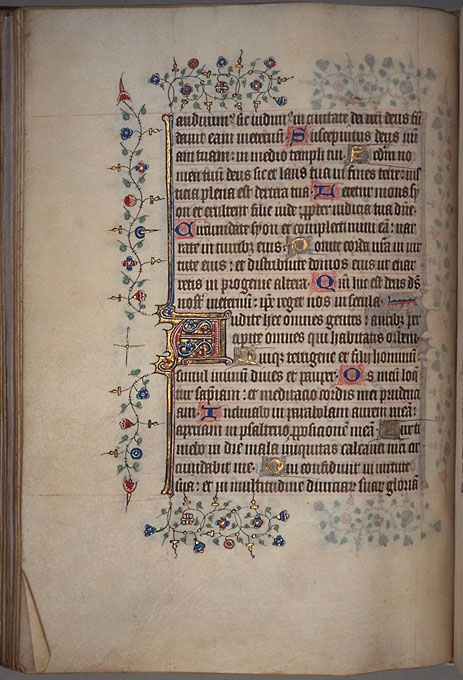 audiuimus sic uidimus in ciuitate dei nr̃i deus fū
dauit eam in eternū Suscepimus deus mi
am tuam: in medio templi tui. Ecdm̃ no
men tuum deus sic et laus tua in fines terre: ius
ticia plena est dextera tua. Letetur mons sy
on et exultent filie iude: ꝓpter iudicia tua dñe.
Circumdate syon et complectimini eā: nar
rate in turribꝫ eius. Ponite corda ur̃a in uir
tute eius: et distribuite domos eius ut enar
retis in progenie altera. Qm̃ hic est deus ds̃
nost̉ in eternū: ip̃e reget nos in secula.
Audite hec omnes gentes: auribꝫ per
cipite omnes qui habitatis orbem.
Quiqꝫ terrigene et filij hominū:
simul in unum diues et pauper. Os meū loq̄
tur sap̃iam: et meditacio cordis mei prudenci
am. Inclinabo in parabolam aurem meā:
aperiam in psalterio ꝓposicionē meā. Cur ti
mebo in die mala iniquitas calcanei mei cir
cumdabit me. Qui confidunt in uirtute
sua: et in multitudine diuiciaꝝ suaꝝ gloriā